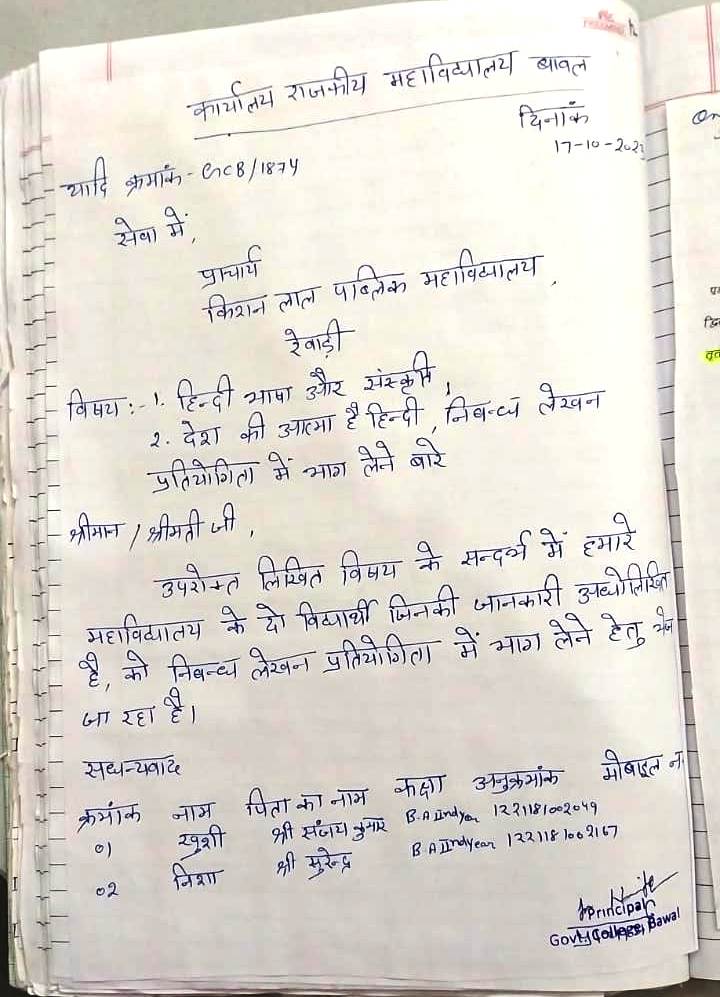 कार्यालय राजकीय महाविद्यालय बावल
दिनांक
17-10-2023
यादि क्रमांक - GCB/1874
सेवा में,
प्राचार्य
किशन लाल पब्लिक महाविद्यालय,
रेवाड़ी
विषय :- 1. हिन्दी भाषा और संस्कृति,
2. देश की आत्मा है हिन्दी, निबन्ध लेखन
प्रतियोगिता में भाग लेने बारे
श्रीमान / श्रीमती जी,
उपरोक्त लिखित विषय के सन्दर्भ में हमारे
महाविद्यालय के दो विद्यार्थी जिनकी जानकारी अधोलिखित
है, को निबन्ध लेखन प्रतियोगिता में भाग लेने हेतु भेजा
जा रहा है।
सधन्यवाद
क्रमांक नाम पिता का नाम कक्षा अनुक्रमांक मोबाइल न
01 खुशी श्री संजय कुमार B.A IIndyear 1221181002049
02 निशा श्री सुरेन्द्र B.A IIndyear 1221181002167
Principal
Govt. College, Bawal